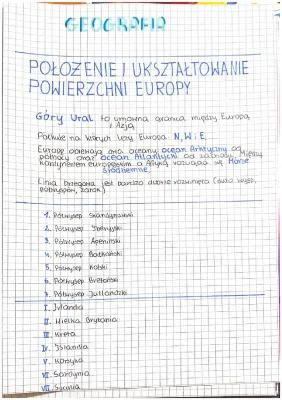 GEOGRAFIA
POŁOŻENIE I UKSZTAŁTOWANIE
POWIERZCHNI EUROPY
Góry Ural to umowna granica między Europą
i Azją
Półkule na których leży Europa N, W i E.
Europę oblewają dwa oceany: ocean Arktyczny od
północy oraz ocean Atlantycki od zachodu. Między
kontynentem europejskim a Afryką rozciąga się Morze
Śródziemne.
Linia brzegowa jest bardzo dobrze rozwinięta (dużo wysp,
półwyspów, zatok)
1. Półwysep Skandynawski
2. Półwysep Iberyjski
3. Półwysep Apeniński
4. Półwysep Bałkański
5. Półwysep Kolski
6. Półwysep Bretoński
7. Półwysep Jutlandzki
I. Irlandia
II. Wielka Brytania
III. Kreta
IV. Islandia
V. Korsyka
VI. Sardynia
VII. Sycylia